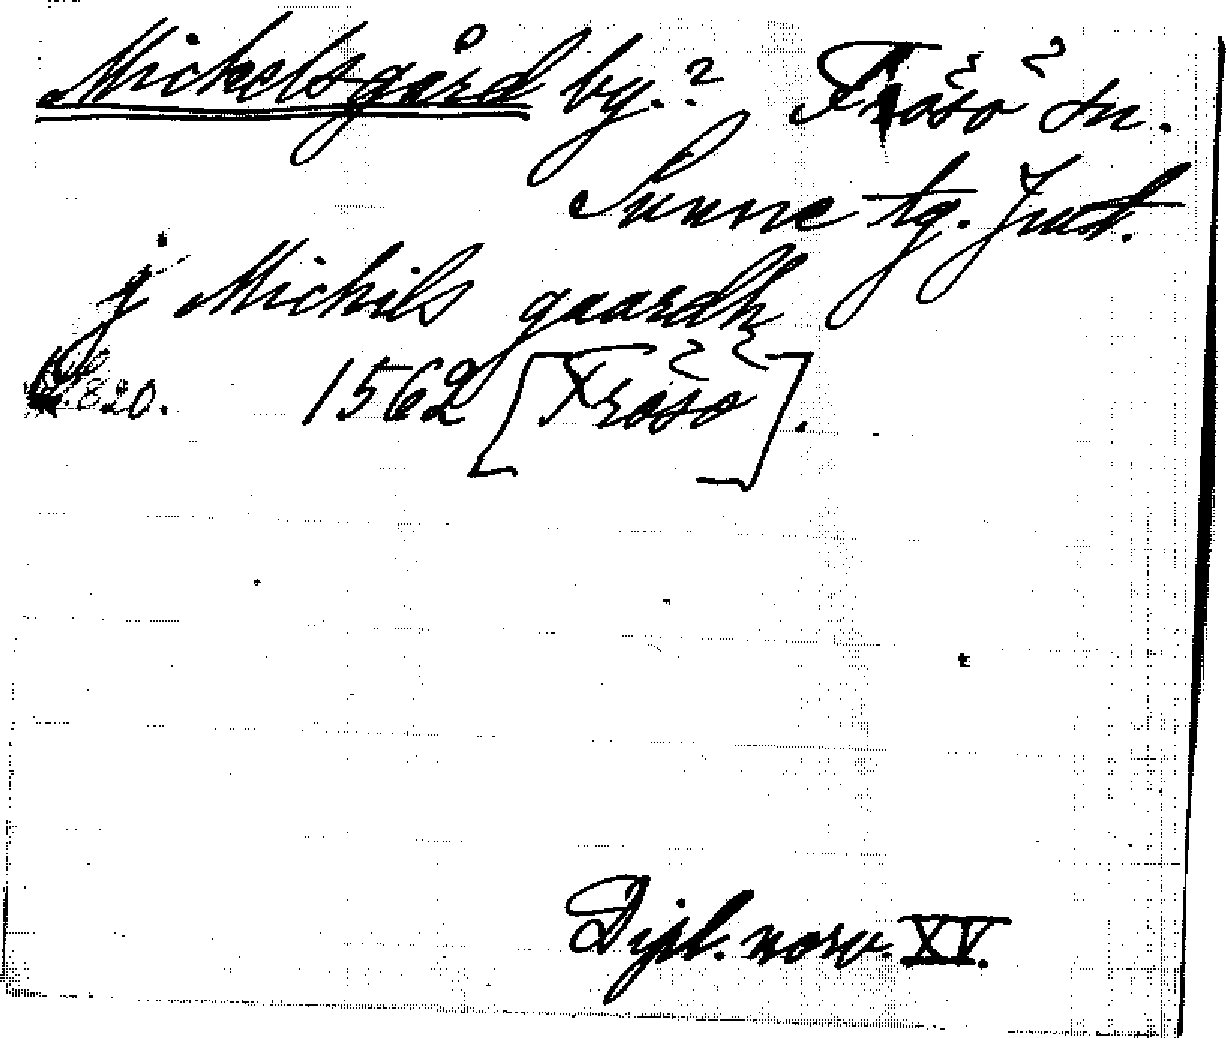 Mickelsgård by.? Frösö sn.
Sunne tg. Jmt.
j Michils gaardh
820. 1562 [Frösö].
Dipl. norv. XV.